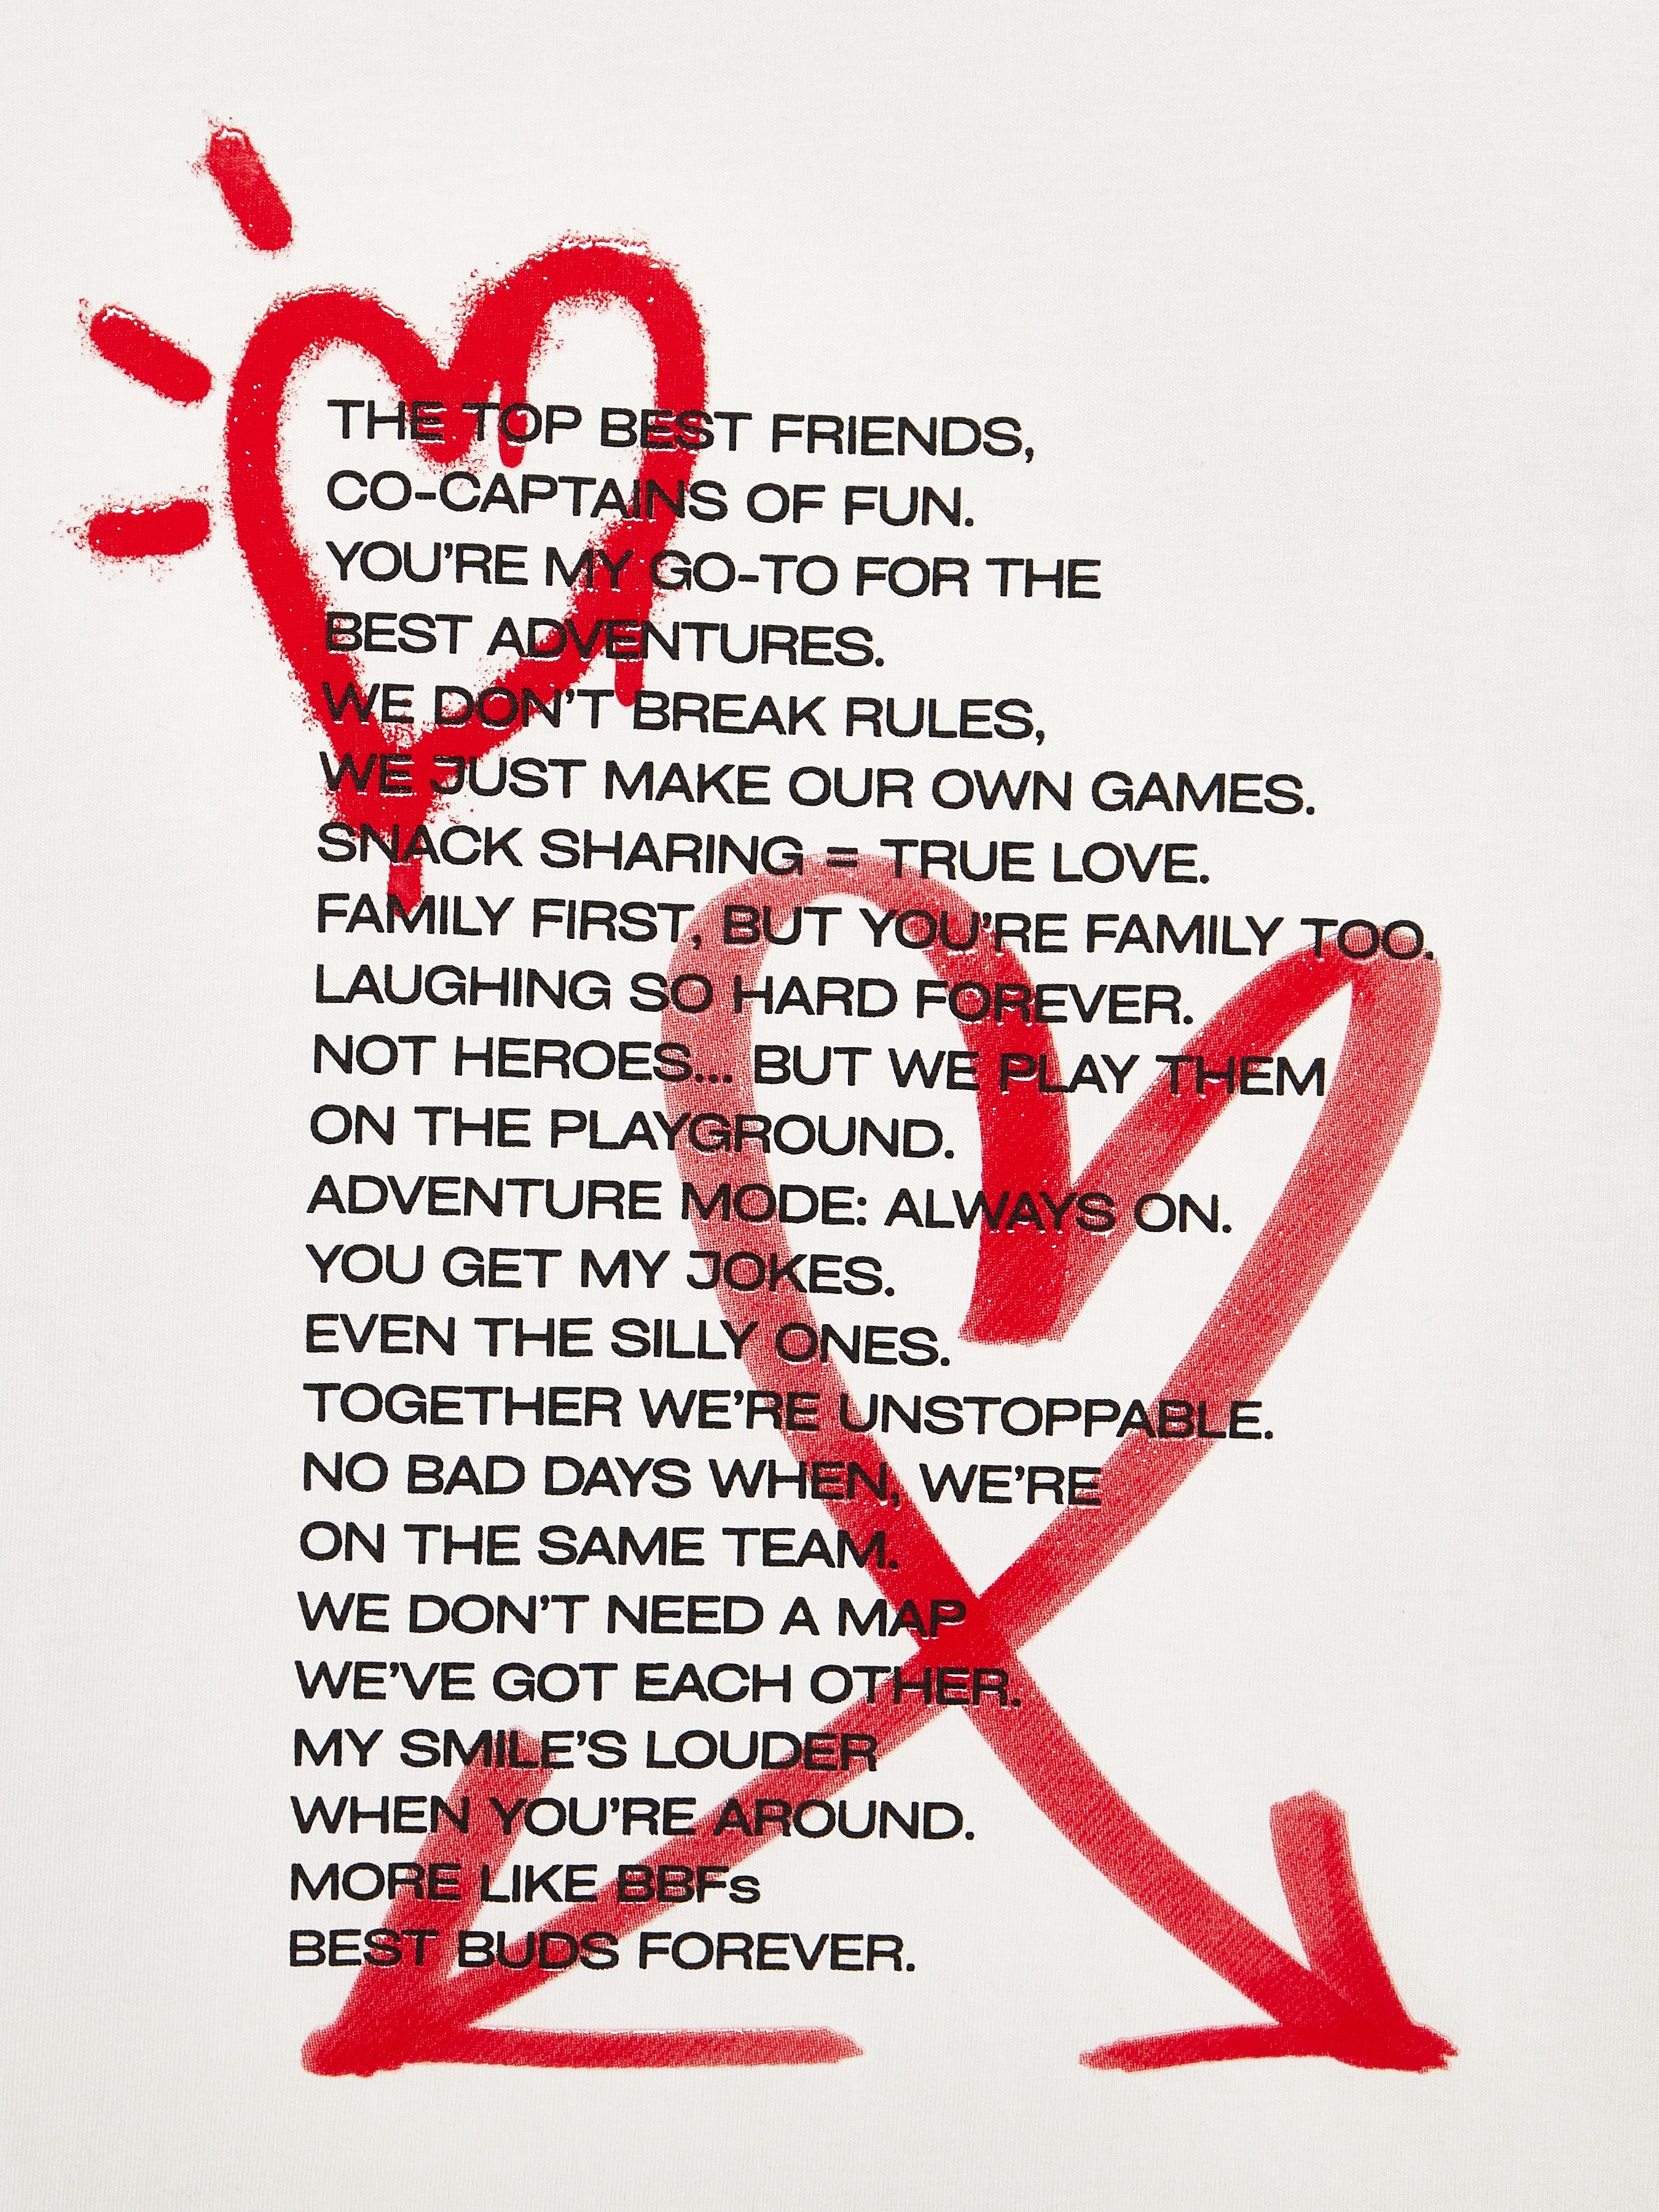 THE TOP BEST FRIENDS,
CO-CAPTAINS OF FUN.
YOU'RE MY GO-TO FOR THE
BEST ADVENTURES.
WE DON'T BREAK RULES,
WE JUST MAKE OUR OWN GAMES.
SNACK SHARING = TRUE LOVE.
FAMILY FIRST, BUT YOU'RE FAMILY TOO.
LAUGHING SO HARD FOREVER.
NOT HEROES... BUT WE PLAY THEM
ON THE PLAYGROUND.
ADVENTURE MODE: ALWAYS ON.
YOU GET MY JOKES.
EVEN THE SILLY ONES.
TOGETHER WE'RE UNSTOPPABLE.
NO BAD DAYS WHEN, WE'RE
ON THE SAME TEAM.
WE DON'T NEED A MAP
WE'VE GOT EACH OTHER.
MY SMILE'S LOUDER
WHEN YOU'RE AROUND.
MORE LIKE BBFs
BEST BUDS FOREVER.